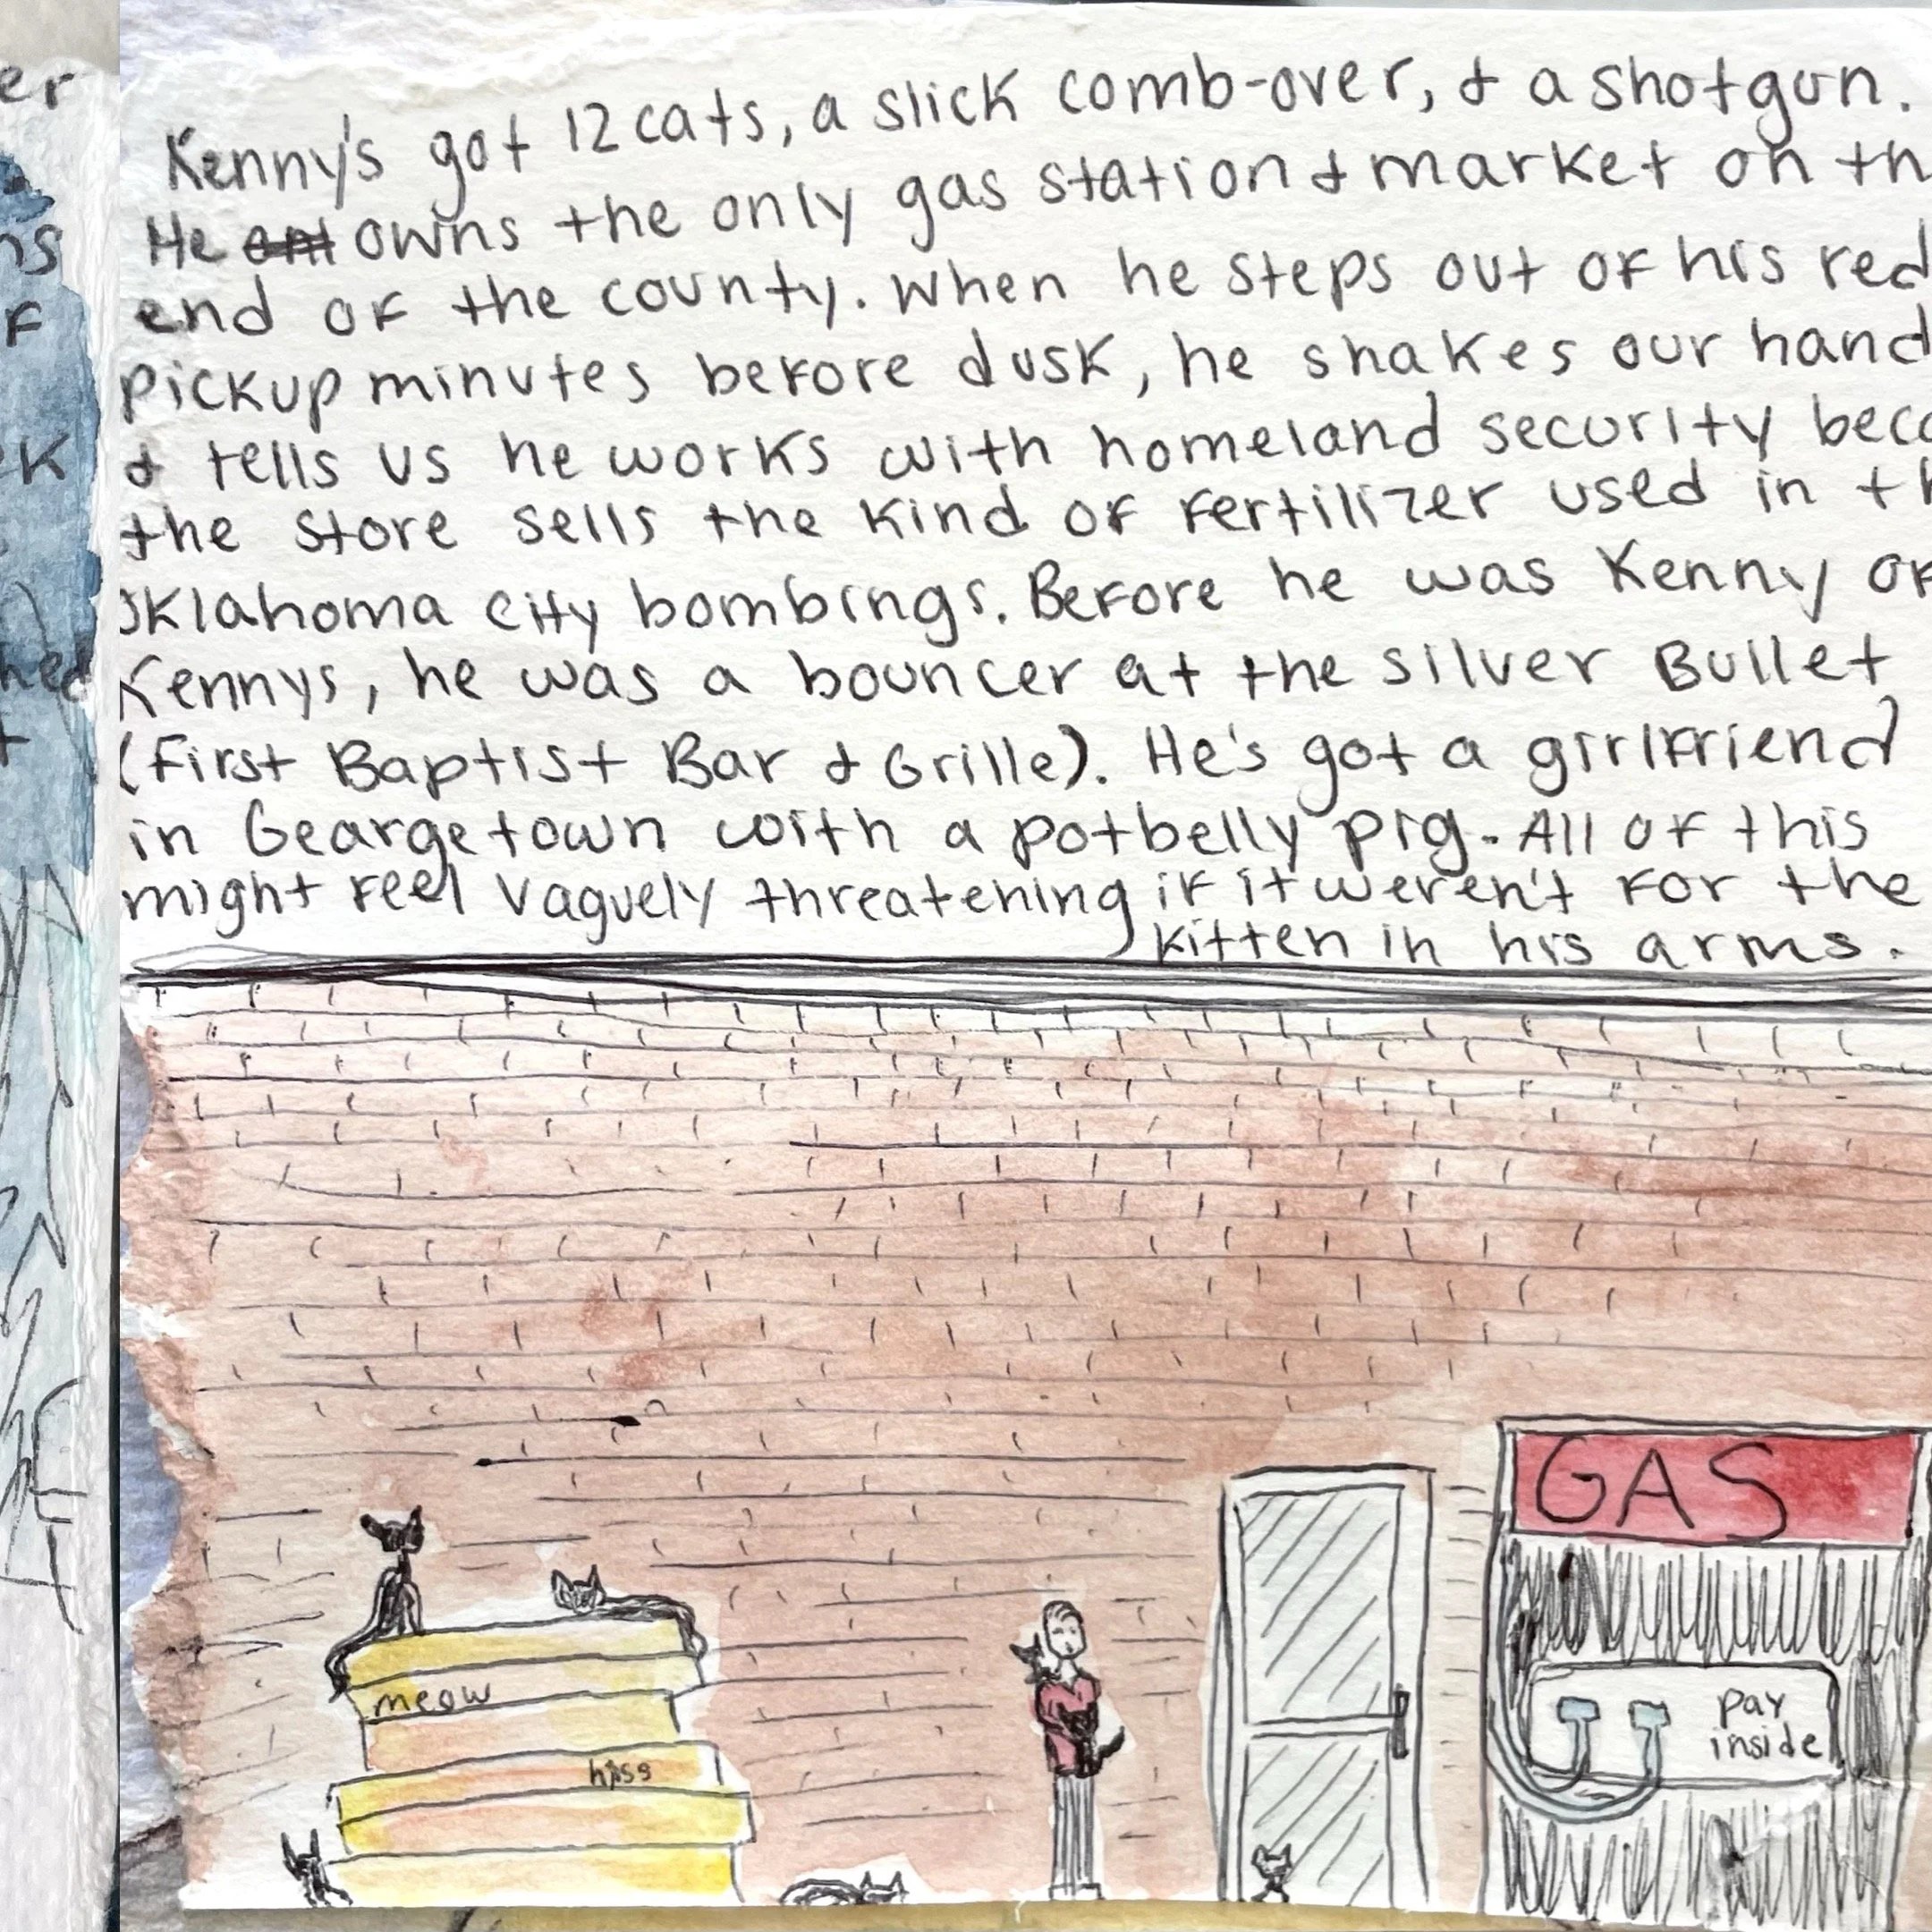 Kenny's got 12 cats, a slick comb-over, & a shotgun.
He owns the only gas station & market on th
end of the county. When he steps out of his red
pickup minutes before dusk, he shakes our hand
& tells us he works with homeland security beca
the store sells the kind of fertilizer used in th
Oklahoma city bombings. Before he was Kenny of
Kennys, he was a bouncer at the silver Bullet
(First Baptist Bar & Grille). He's got a girlfriend
in Geargetown with a potbelly pig. All of this
might feel vaguely threatening if it weren't for the
kitten in his arms.
GAS
meow
pay
inside
hiss
er
ns
F
ek
hed
t